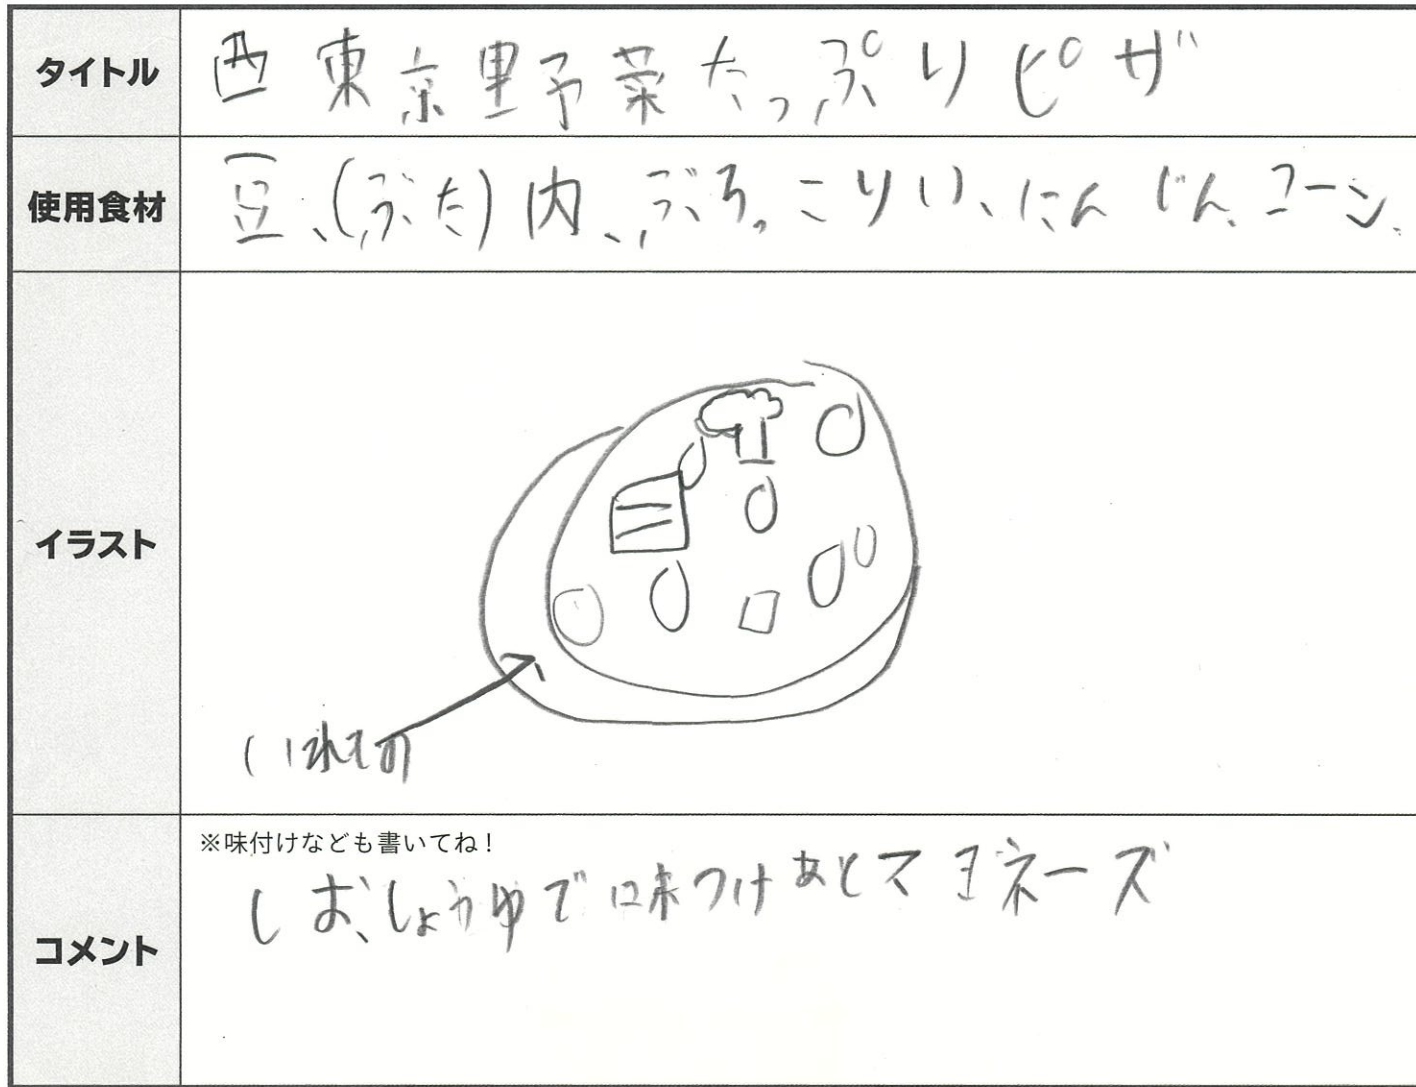 タイトル
西東京里予菜たっぷりピザ
使用食材
豆、(ぶた)内、ぶろっこりい、にんじん、コーン、
イラスト
いれもの
コメント
※味付けなども書いてね!
しお、しょうゆで味つけあとマヨネーズ